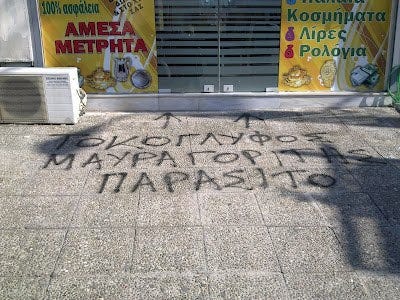 100% ασφάλεια
ΑΜΕΣΑ
ΜΕΤΡΗΤΑ
Παλαιά
Κοσμήματα
Λίρες
Ρολόγια
ΤΟΚΟΓΛΥΦΟΣ
ΜΑΥΡΑΓΟΡΙΤΗΣ
ΠΑΡΑΣΙΤΟ